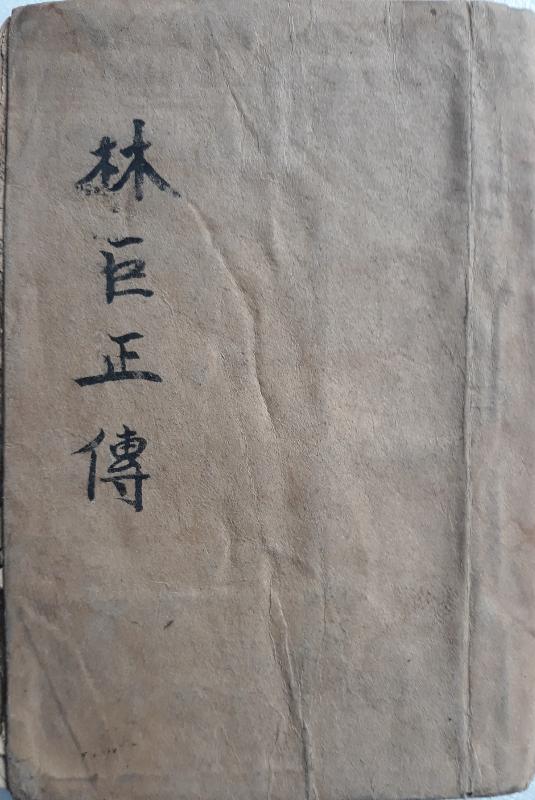 林巨正傳